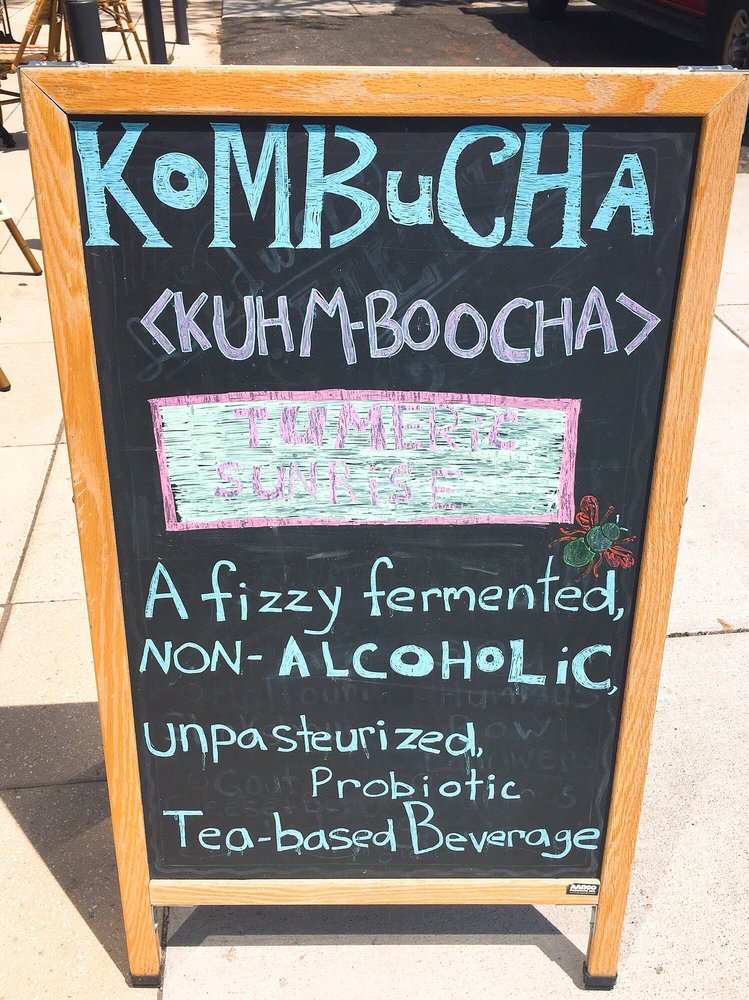 KoMBuCHA
<KUHM-BOOCHA>
TUMERiC
SUNRiSE
A fizzy fermented,
NON-ALCOHOLiC,
unpasteurized,
Probiotic
Tea-based Beverage
AARCO